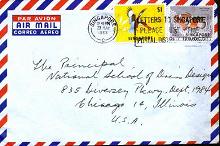 PAR AVION
AIR MAIL
CORREO AEREO
SINGAPORE
$1
SINGAPORE
LETTERS TO SINGAPORE
PLEASE
POSTAL DISTRICT
The Principal
National School of Dress Design
835 Diversey Pkwy, Dept.
Chicago 14, Illinois
U.S.A.